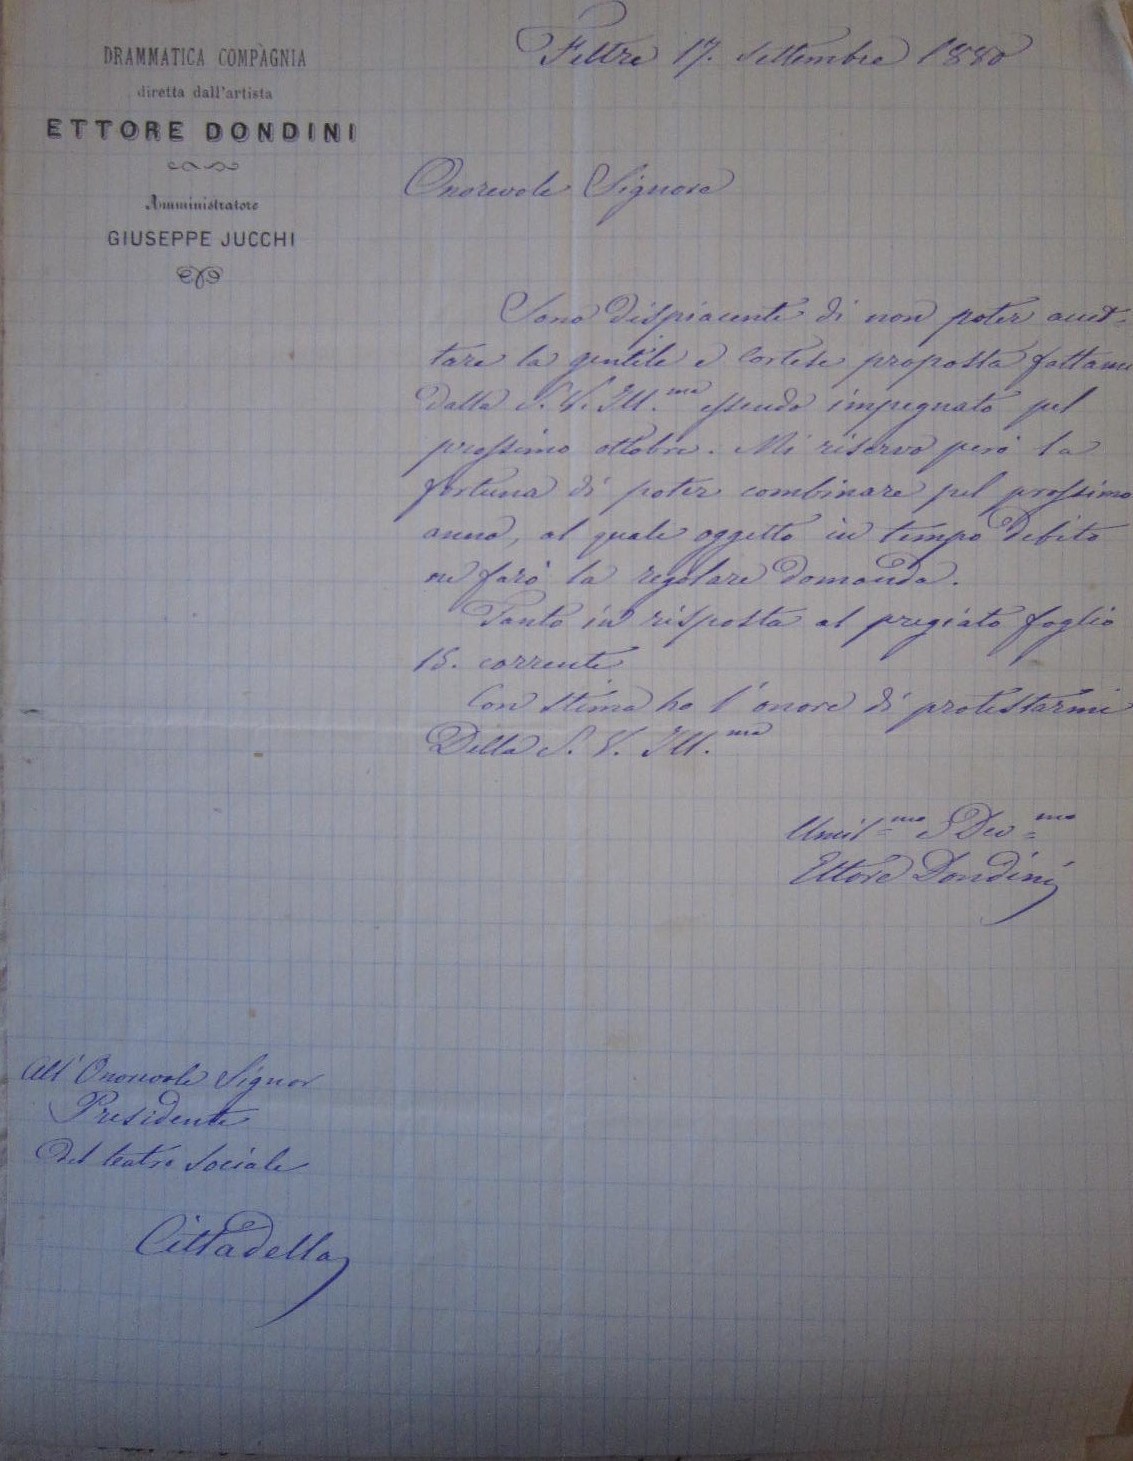 DRAMMATICA COMPAGNIA
diretta dall'artista
ETTORE DONDINI
Amministratore
GIUSEPPE JUCCHI
Feltre 17. Settembre 1880
Onorevole Signore
Sono dispiacente di non poter accet-
tare la gentile e cortese proposta fattami
dalla S. V. Ill.ma essendo impegnato pel
prossimo ottobre. Mi riservo però la
fortuna di poter combinare pel prossimo
anno, al quale oggetto in tempo debito
ne farò la regolare domanda.
Tanto in risposta al pregiato foglio
15. corrente
Con stima ho l'onore di protestarmi
Della S. V. Ill.ma
Umil.mo e Dev.mo
Ettore Dondini
All'Onorevole Signor
Presidente
del teatro Sociale
Cittadella